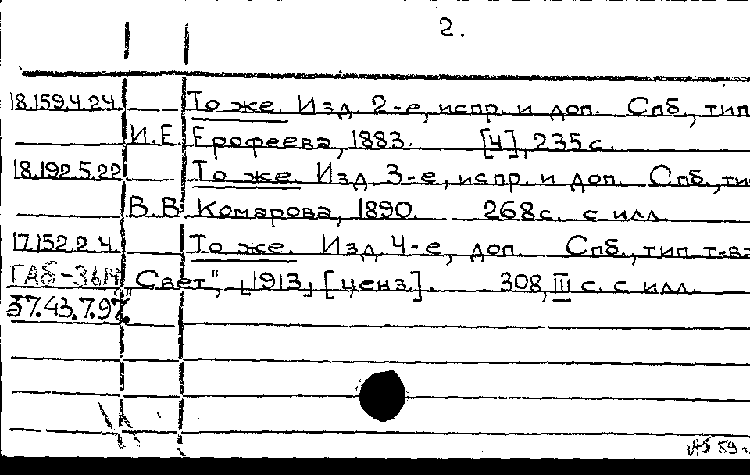 2.
18.159.4.24. То же. Изд. 2-е, испр. и доп. Спб., тип.
И.Е. Ерофеева, 1883. [4], 235 с.
18.192.5.22 То же. Изд. 3-е, испр. и доп. Спб., ти
В.В. Комарова, 1890. 268 с. с илл.
17.152.2.4. То же. Изд. 4-е, доп. Спб., тип. т-ва
„Свет", [1913] [ценз.]. 308, III с. с илл.
37.43.7.97.